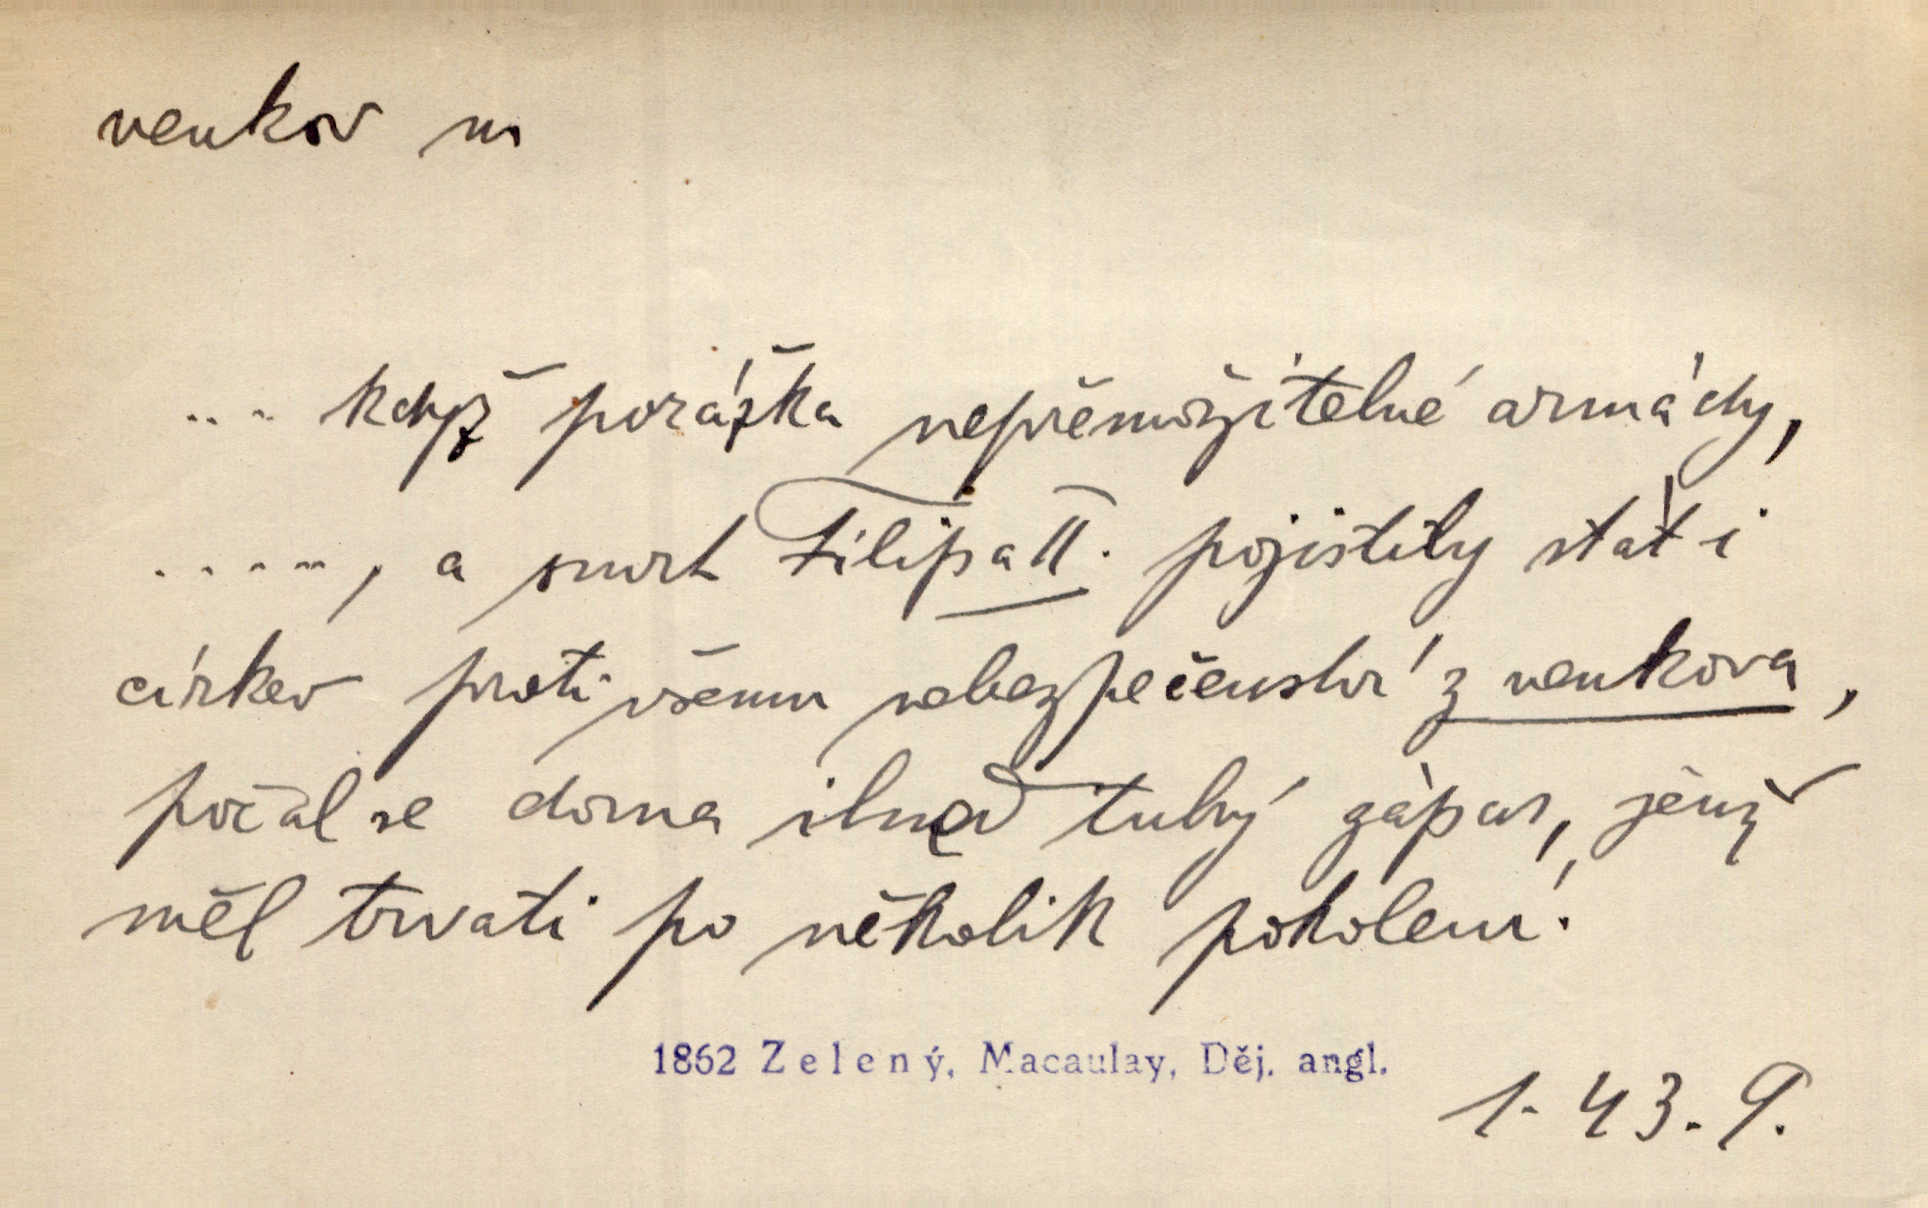 venkov m
... když porážka nepřemožitelné armády,
....., a smrt Filipa II. pojistily stát i
církev proti všemu nebezpečenství z venkova,
počal se doma ihned tuhý zápas, jenž
měl trvati po několik pokolení.
1862 Zelený, Macaulay, Děj. angl.
1. 43. 9.